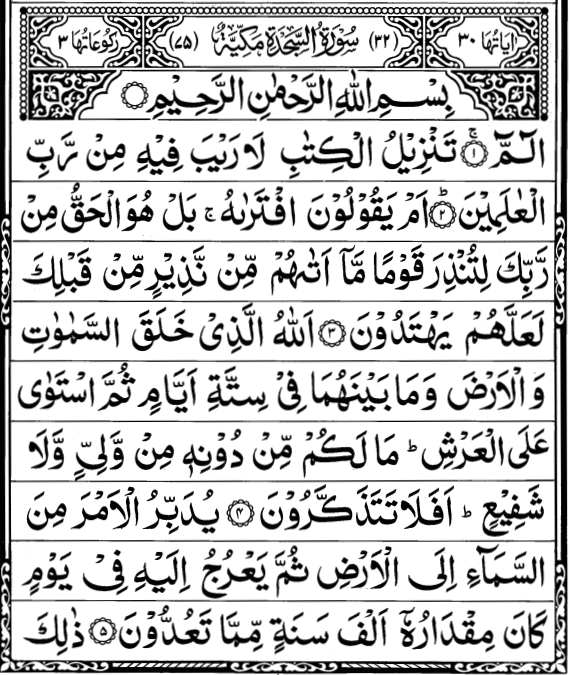 اٰیَاتُهَا ٣٠ (٣٢) سُوْرَةُ السَّجْدَةِ مَكِّیَّةٌ (٧٥) رُكُوْعَاتُهَا ٣
بِسْمِ اللّٰهِ الرَّحْمٰنِ الرَّحِیْمِ
الٓمّٓ ۚ‏﴿١﴾ تَنْزِیْلُ الْكِتٰبِ لَا رَیْبَ فِیْهِ مِنْ رَّبِّ
الْعٰلَمِیْنَ ؕ‏﴿٢﴾ اَمْ یَقُوْلُوْنَ افْتَرٰىهُ ۚ بَلْ هُوَ الْحَقُّ مِنْ
رَّبِّكَ لِتُنْذِرَ قَوْمًا مَّاۤ اَتٰىهُمْ مِّنْ نَّذِیْرٍ مِّنْ قَبْلِكَ
لَعَلَّهُمْ یَهْتَدُوْنَ ﴿٣﴾ اَللّٰهُ الَّذِیْ خَلَقَ السَّمٰوٰتِ
وَ الْاَرْضَ وَ مَا بَیْنَهُمَا فِیْ سِتَّةِ اَیَّامٍ ثُمَّ اسْتَوٰی
عَلَی الْعَرْشِ ؕ مَا لَكُمْ مِّنْ دُوْنِهٖ مِنْ وَّلِیٍّ وَّ لَا
شَفِیْعٍ ؕ اَفَلَا تَتَذَكَّرُوْنَ ﴿٤﴾ یُدَبِّرُ الْاَمْرَ مِنَ
السَّمَآءِ اِلَی الْاَرْضِ ثُمَّ یَعْرُجُ اِلَیْهِ فِیْ یَوْمٍ
كَانَ مِقْدَارُهٗۤ اَلْفَ سَنَةٍ مِّمَّا تَعُدُّوْنَ ﴿٥﴾ ذٰلِكَ